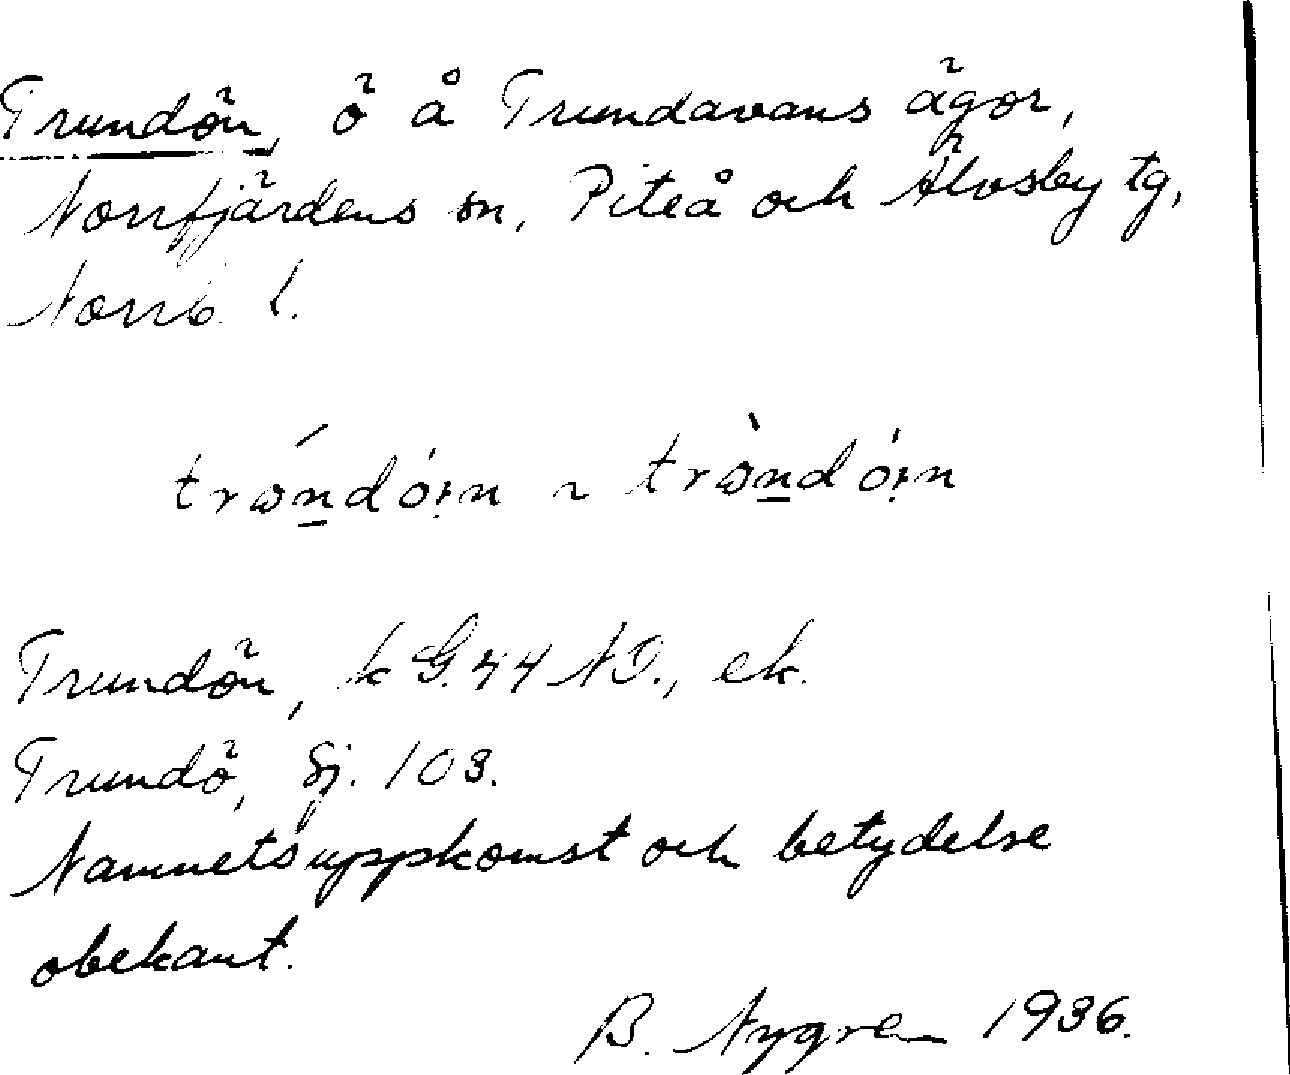 Trundön, ö å Trundavans ägor,
Norrfjärdens sn, Piteå och Älvsby tg,
Norrb. l.
Trundön, k G. 44 NO., ek.
Trundö, Sj. 103.
Namnets uppkomst och betydelse
obekant.
B. Nygren 1936.